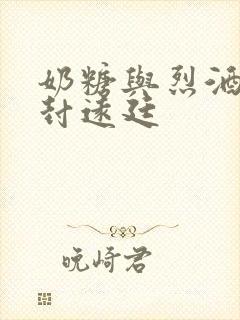 奶糖與烈酒
封遠廷
晚崎君